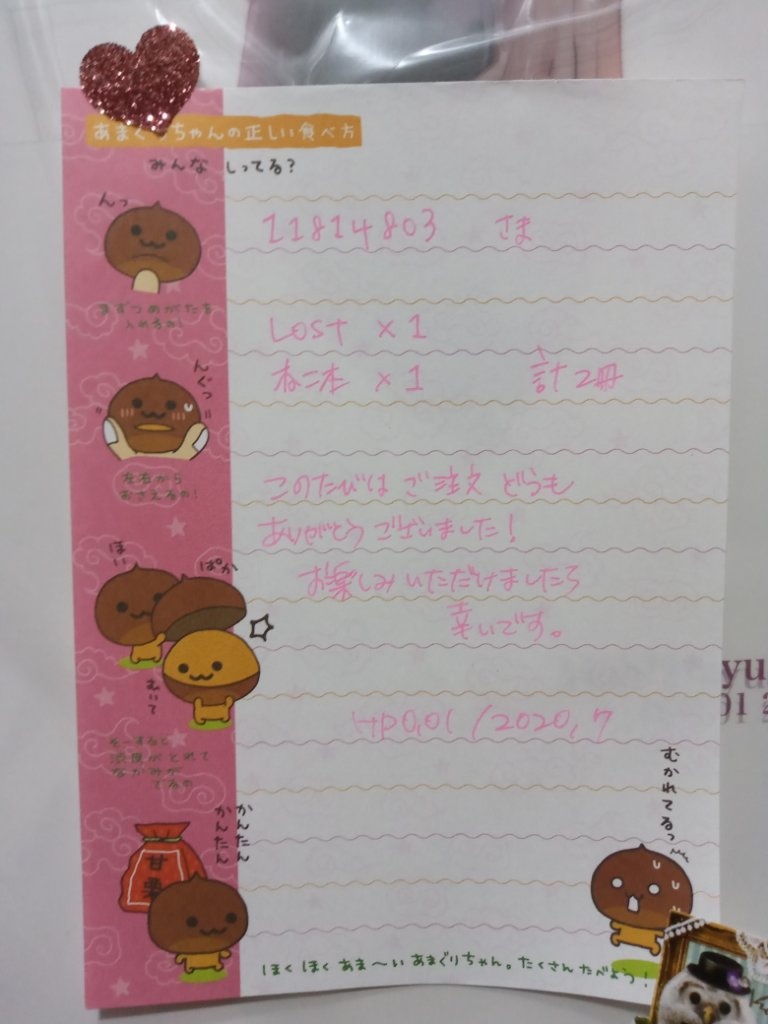 あまぐりちゃんの正しい食べ方
みんな しってる?
んっ
まずつめがたを
入れるの!
んぐっ
左右から
おさえるの!
ほい
ぱか
むいて
渋皮がとれて
なかみが
でるの
かんたん
かんたん
甘栗
11814803 さま
LOST ×1
ねこ本 ×1 計2冊
このたびは ご注文 どうも
ありがとう ございました!
お楽しみいただけましたら
幸いです。
HP0.01 /2020.7
むかれてるっ
ほくほくあま〜いあまぐりちゃん。たくさんたべよう!
yu
01 2